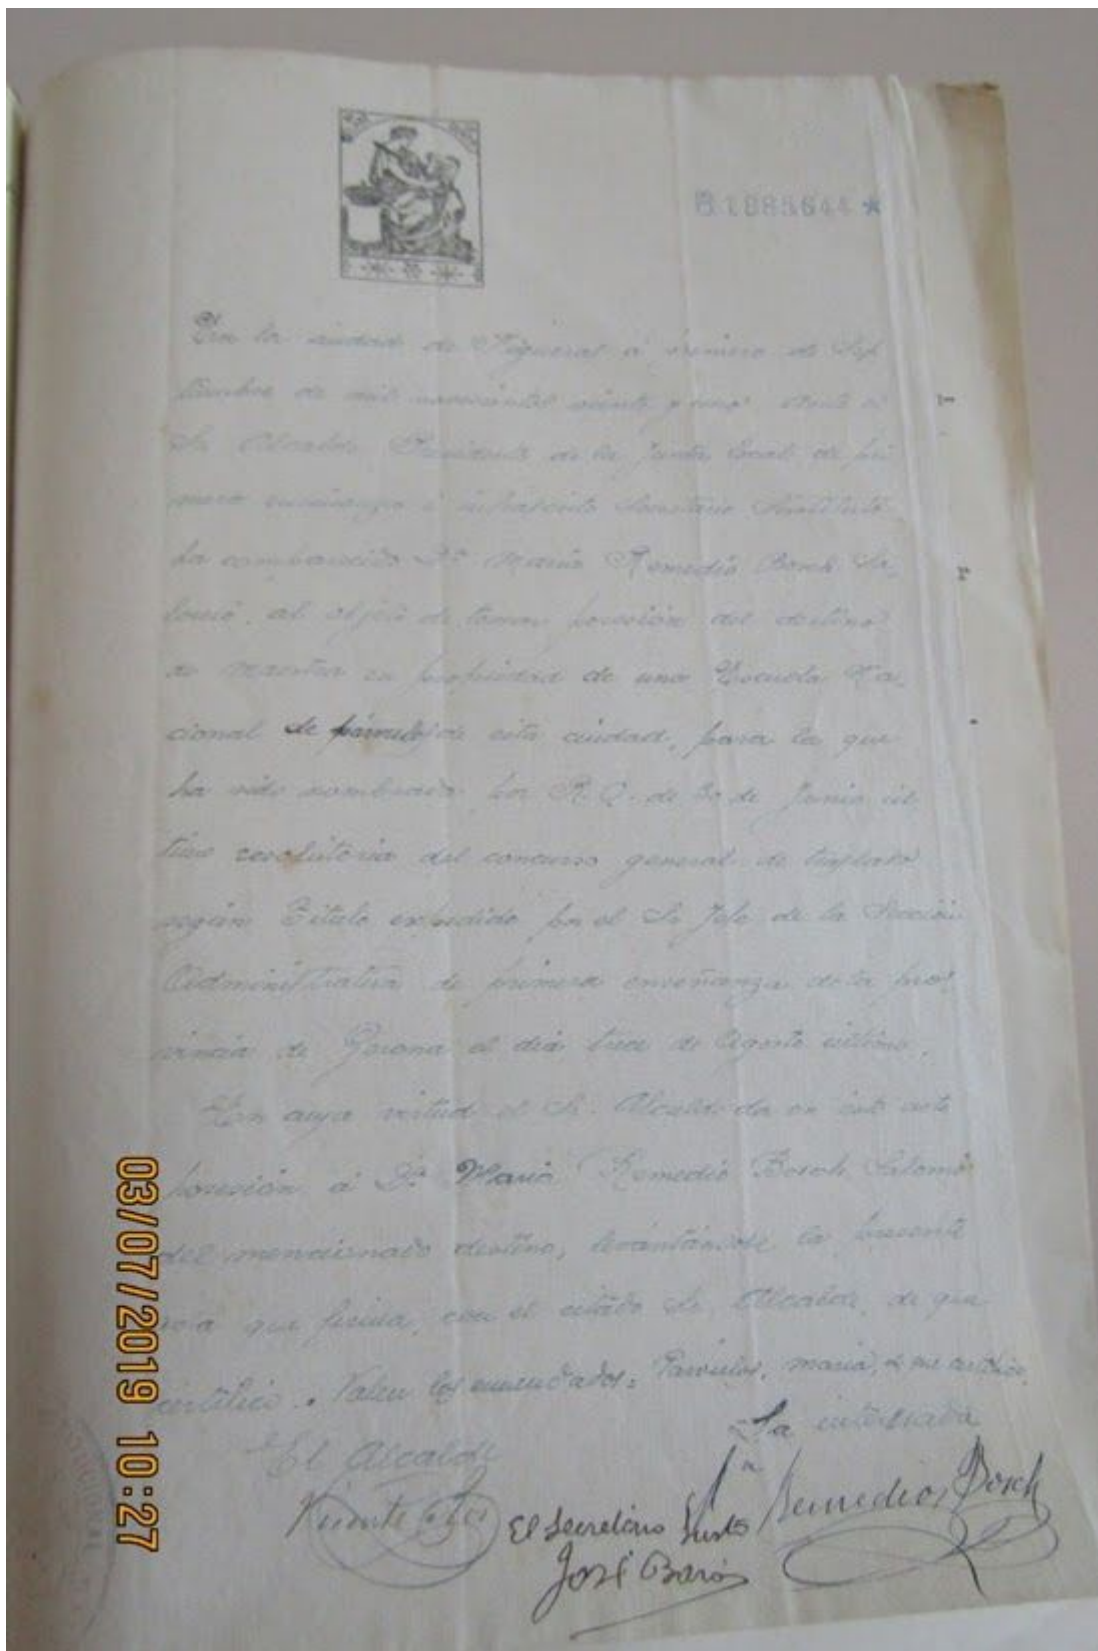 B.1885644 *
En la ciudad de Figueras á primero de Sep
tiembre de mil novecientos veinte y uno. Ante el
Sr. Alcalde Presidente de la Junta local de pri
mera enseñanza é infrascrito Secretario Sustituto
ha comparecido Dª Maria Remedio Bosch Sa
lomó, al objeto de tomar posesión del destino
de Maestra en propiedad de una Escuela Na
cional de párvulos de esta ciudad, para la que
ha sido nombrada por R. O. de 30 de Junio úl
timo resolutoria del concurso general de traslado
según Título expedido por el Sr. Jefe de la Sección
Administrativa de primera enseñanza de la pro
vincia de Gerona el día tres de Agosto último.
En cuya virtud el Sr. Alcalde da en este acto
posesión á Dª Maria Remedio Bosch Salomó
del mencionado destino, levantándose la presente
acta que firma, con el citado Sr. Alcalde, de que
certifico. Valen los enmendados: Párvulos, maria,
El Alcalde
La interesada
Vicente
El Secretario Susto
Remedios Bosch
José Baró
03/07/2019 10:27